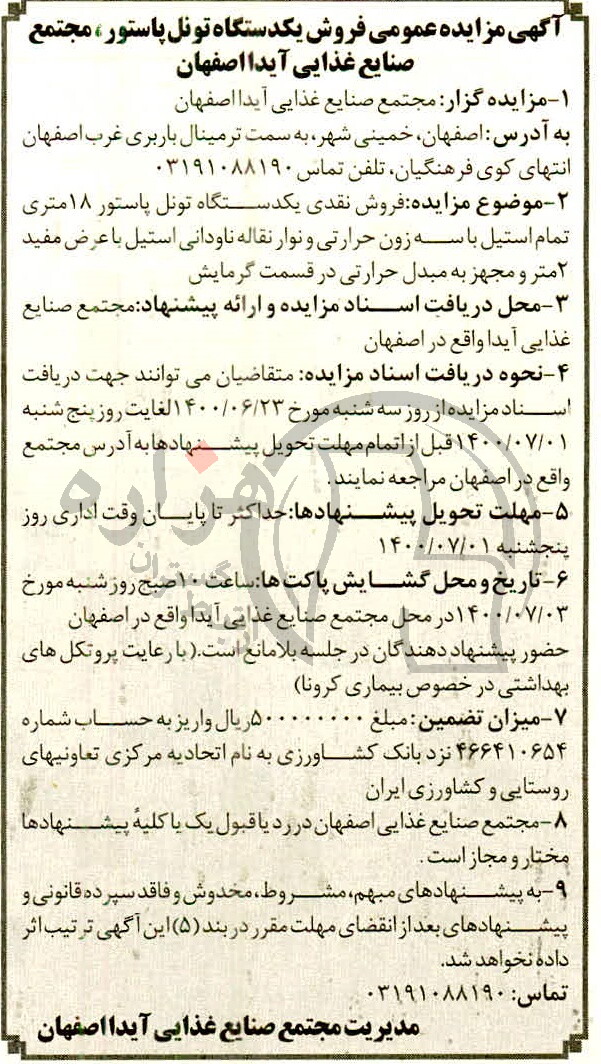 آگهی مزایده عمومی فروش یکدستگاه تونل پاستور ، مجتمع
صنایع غذایی آیدا اصفهان
۱-مزایده گزار: مجتمع صنایع غذایی آیدا اصفهان
به آدرس: اصفهان، خمینی شهر، به سمت ترمینال باربری غرب اصفهان
انتهای کوی فرهنگیان، تلفن تماس ۰۳۱۹۱۰۸۸۱۹۰
۲-موضوع مزایده:فروش نقدی یکدستگاه تونل پاستور ۱۸متری
تمام استیل با سه زون حرارتی و نوار نقاله ناودانی استیل با عرض مفید
۲متر و مجهز به مبدل حرارتی در قسمت گرمایش
۳-محل دریافت اسناد مزایده و ارائه پیشنهاد:مجتمع صنایع
غذایی آیدا واقع در اصفهان
۴-نحوه دریافت اسناد مزایده: متقاضیان می توانند جهت دریافت
اسناد مزایده از روز سه شنبه مورخ ۱۴۰۰/۰۶/۲۳لغایت روز پنج شنبه
۱۴۰۰/۰۷/۰۱ قبل از اتمام مهلت تحویل پیشنهادها به آدرس مجتمع
واقع در اصفهان مراجعه نمایند.
۵-مهلت تحویل پیشنهادها:حداکثر تا پایان وقت اداری روز
پنجشنبه ۱۴۰۰/۰۷/۰۱
۶-تاریخ و محل گشایش پاکت ها:ساعت ۱۰صبح روز شنبه مورخ
۱۴۰۰/۰۷/۰۳در محل مجتمع صنایع غذایی آیدا واقع در اصفهان
حضور پیشنهاد دهندگان در جلسه بلامانع است.(با رعایت پروتکل های
بهداشتی در خصوص بیماری کرونا)
۷-میزان تضمین: مبلغ ۵۰۰۰۰۰۰۰۰۰ریال واریز به حساب شماره
۴۶۶۴۱۰۶۵۴ نزد بانک کشاورزی به نام اتحادیه مرکزی تعاونیهای
روستایی و کشاورزی ایران
۸-مجتمع صنایع غذایی اصفهان در رد یا قبول یک یا کلیهٔ پیشنهادها
مختار و مجاز است .
۹-به پیشنهادهای مبهم، مشروط، مخدوش و فاقد سپرده قانونی و
پیشنهادهای بعد از انقضای مهلت مقرر در بند (۵) این آگهی ترتیب اثر
داده نخواهد شد.
تماس: ۰۳۱۹۱۰۸۸۱۹۰
مدیریت مجتمع صنایع غذایی آیدا اصفهان